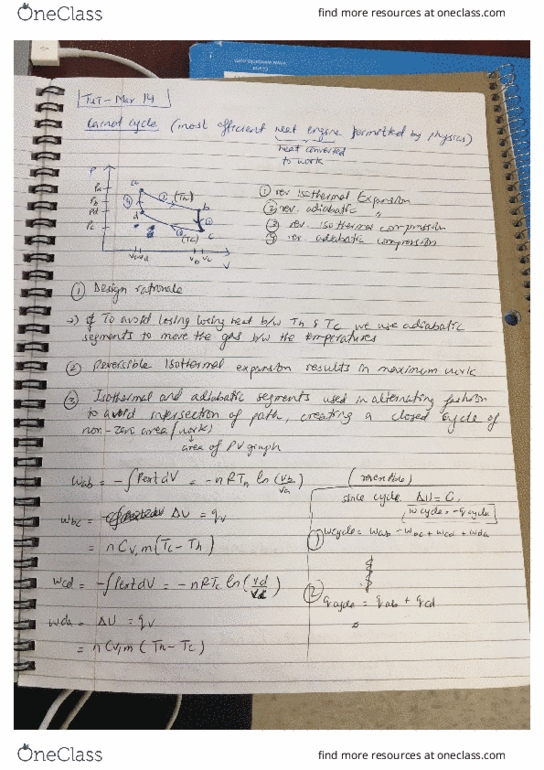 OneClass
find more resources at oneclass.com
TuT - Mar 14
Carnot cycle (most efficient heat engine permitted by physics)
heat converted
to work
P
Pa
Pb
Pd
Pc
a
① (Th)
b
④
②
d
③ (Tc)
c
Va Vd
Vb Vc
V
① rev isothermal Expansion
② rev. adiabatic "
③ rev. isothermal compression
④ rev adiabatic compression
① Design rationale
To avoid losing heat b/w Th & Tc we use adiabatic
segments to move the gas b/w the temperatures
② Reversible isothermal expansion results in maximum work
③ Isothermal and adiabatic segments used in alternating fashion
to avoid intersection of path, creating a closed cycle of
non-zero area (work)
area of PV graph
Wab = -∫Pext dV = -nRTh ln(Vb/Va)
Wbc = ΔU = qv
= nCv,m(Tc - Th)
Wcd = -∫Pext dV = -nRTc ln(Vd/Vc)
Wda = ΔU = qv
= nCv,m(Th - Tc)
since cycle ΔU = 0,
Wcycle = -qcycle
① Wcycle = Wab - Wbc + Wcd + Wda
② qcycle = qab + qcd
OneClass
find more resources at oneclass.com